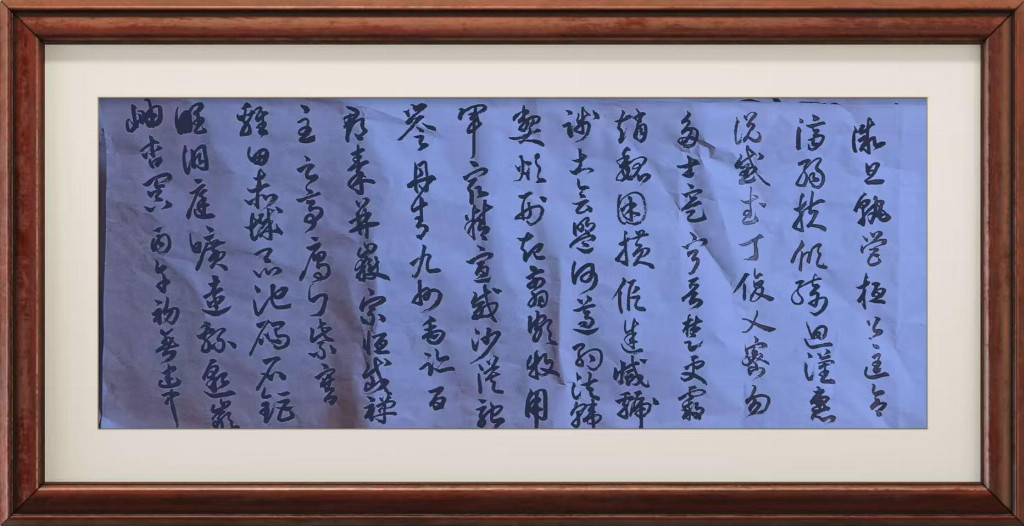 微旦孰營桓公匡合
濟弱扶傾綺迴漢惠
說感武丁俊乂密勿
多士寔寧晉楚更霸
趙魏困橫假途滅虢
踐土會盟何遵約法韓
弊煩刑起翦頗牧用
軍最精宣威沙漠馳
譽丹青九州禹跡百
郡秦并嶽宗恆岱禪
主云亭雁門紫塞
雞田赤城昆池碣石鉅
野洞庭曠遠綿邈巖
岫杳冥丙午初春建中